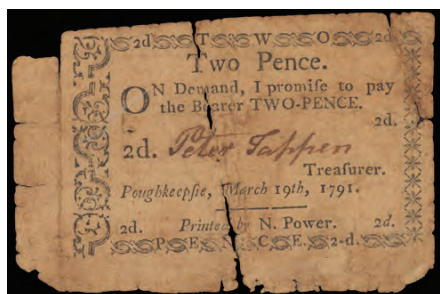 2d T W O 2d
Two Pence.
ON Demand, I promise to pay
the Bearer TWO-PENCE.
2d.
2d. Peter Tappen
Treaſurer.
Poughkeepſie, March 19th, 1791.
2d. Printed by N. Power. 2d.
P E N C E. 2-d.